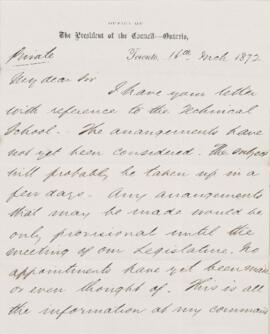 OFFICE OF
The President of the Council—Ontario,
Private
Toronto, 16th Mch 1872
My dear Sir
I have your letter
with reference to the Technical
School. — The arrangements have
not yet been considered. The subject
will probably be taken up in a
few days. Any arrangements
that may be made would be
only provisional until the
meeting of our Legislature. No
appointments have yet been made
or even thought of. This is all
the information at my command